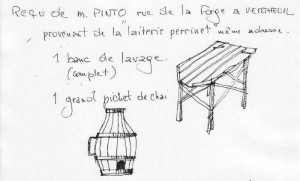 Reçu de m. PINTO rue de la forge a VERTHEUIL
provenant de la "laiterie perrinet" même adresse.
1 banc de lavage.
(complet)
1 grand pichet de chai